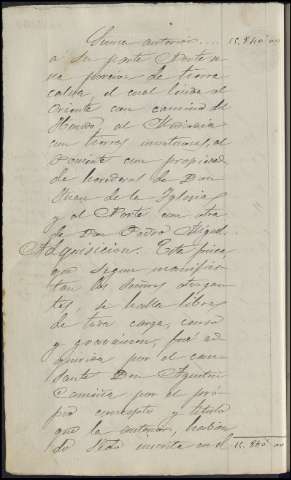 Suma anterior.... 15.840 00
á su parte Norte u
na porcion de tierra
calva, el cual linda al
Oriente con camino del
al Mediodia
con tierras al
Poniente con propiedad
de herederos de Don
Juan de la Iglesia
y al Norte con otra
de Don Pedro Miguel.
Adquisicion. Esta finca,
que segun manifies
tan los señores otorgan
tes, se halla libre
de toda carga, censo
y gravámen, fué ad
quirida por el cau
sante Don Agustin
por el pro
pio concepto y titulo
que la anterior, habien
do sido inscrita en el 15.840 00